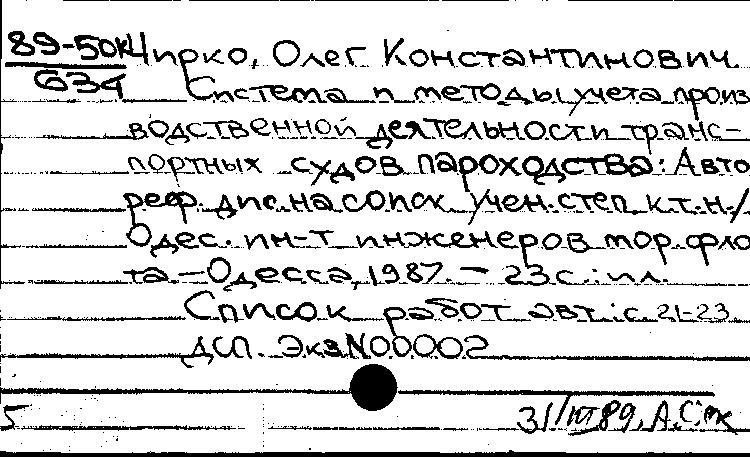 89-50к Чирко, Олег Константинович
634
Система и методы учета произ
водственной деятельности транс-
портных судов пароходства: Авто
реф. дис. на соиск. учен. степ. к.т.н./
Одес. ин-т инженеров мор. фло
та.—Одесса, 1987. — 23 с.: ил.
Список работ авт.: с. 21-23
ДСП. Экз N00002
5